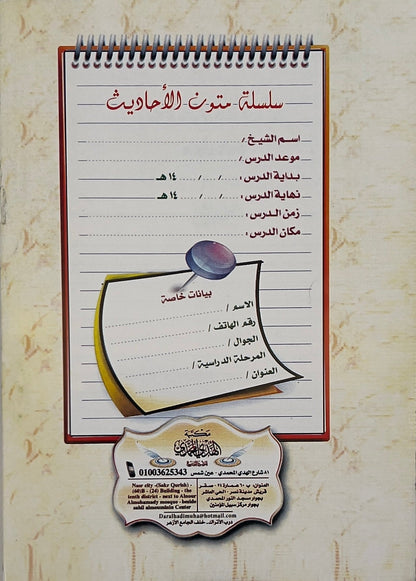 سلسلة متون الأحاديث
اسم الشيخ /
موعد الدرس /
بداية الدرس : ..... / ..... / ..... ١٤ هـ
نهاية الدرس : ..... / ..... / ..... ١٤ هـ
زمن الدرس :
مكان الدرس :
بيانات خاصة
الاسم /
رقم الهاتف /
الجوال /
المرحلة الدراسية /
العنوان /
مكتبة
الهدي المحمدي
01003625343
٨١ شارع الهدي المحمدي - عين شمس
العنوان: ب ٦٠ عمارة ٢٤ - صقر
قريش مدينة نصر - الحي العاشر
بجوار مسجد النور المحمدي
بجوار مركز سبيل المؤمنين
Nasr city - (Sakr Qurish) -
(60)B - (24) Building - the
tenth district - next to Alnour
Almohamady mosque - beside
sabil almoumnin Center
Daralhadimuha@hotmail.com
درب الأتراك، خلف الجامع الأزهر